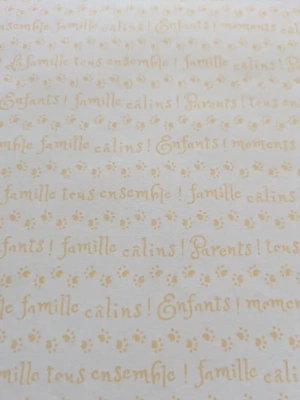 ensemble ! famille câlins ! Enfants
La famille tous ensemble ! famille câlins ! Pa
Enfants ! famille câlins ! Parents ! tous ens
mble famille câlins ! Enfants ! moments
famille tous ensemble ! famille câlins
nfants ! famille câlins ! Parents ! tous
le famille câlins ! Enfants ! momen
mille tous ensemble ! famille câlin